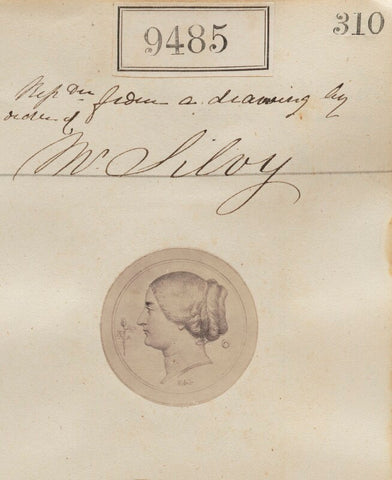 9485
310
Rep ᵗⁿ from a drawing by
order of
Mr Silvy